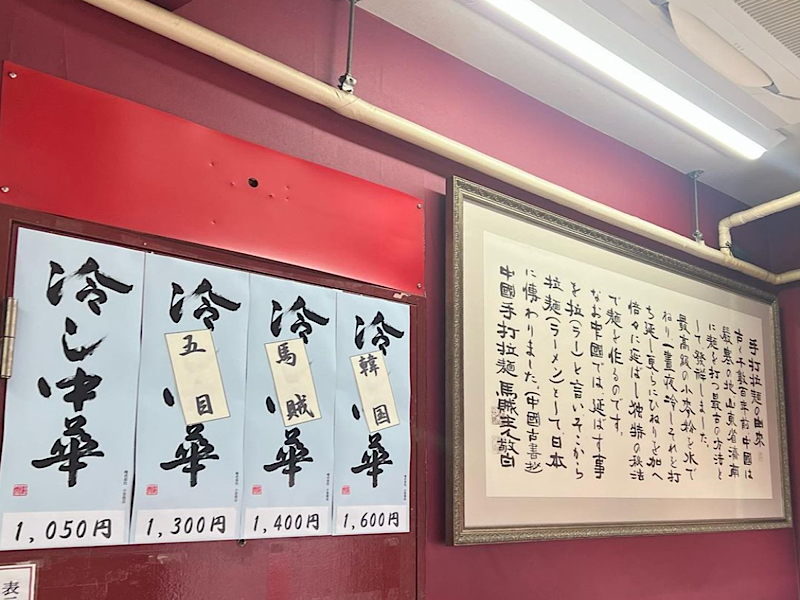 冷し中華
1,050円
冷
五目
華
1,300円
冷
馬賊
華
1,400円
冷
韓国
華
1,600円
手打拉麺の由来
古く千数百年前中国は
殷墓の地山東省済南
に麺を打つ最古の方法と
して発祥しました。
最高級の小麦粉と水で
ねり一晝夜冷しそれを打
ち延し更らにひねりを加へ
倍々に延ばし独特の秘法
で麺を作るのです。
なお中國では延ばす事
を拉(ラー)と言いそこから
拉麺(ラーメン)として日本
に傳わりました。(中國古書抄
中國手打拉麺 馬賊主人敬白
表